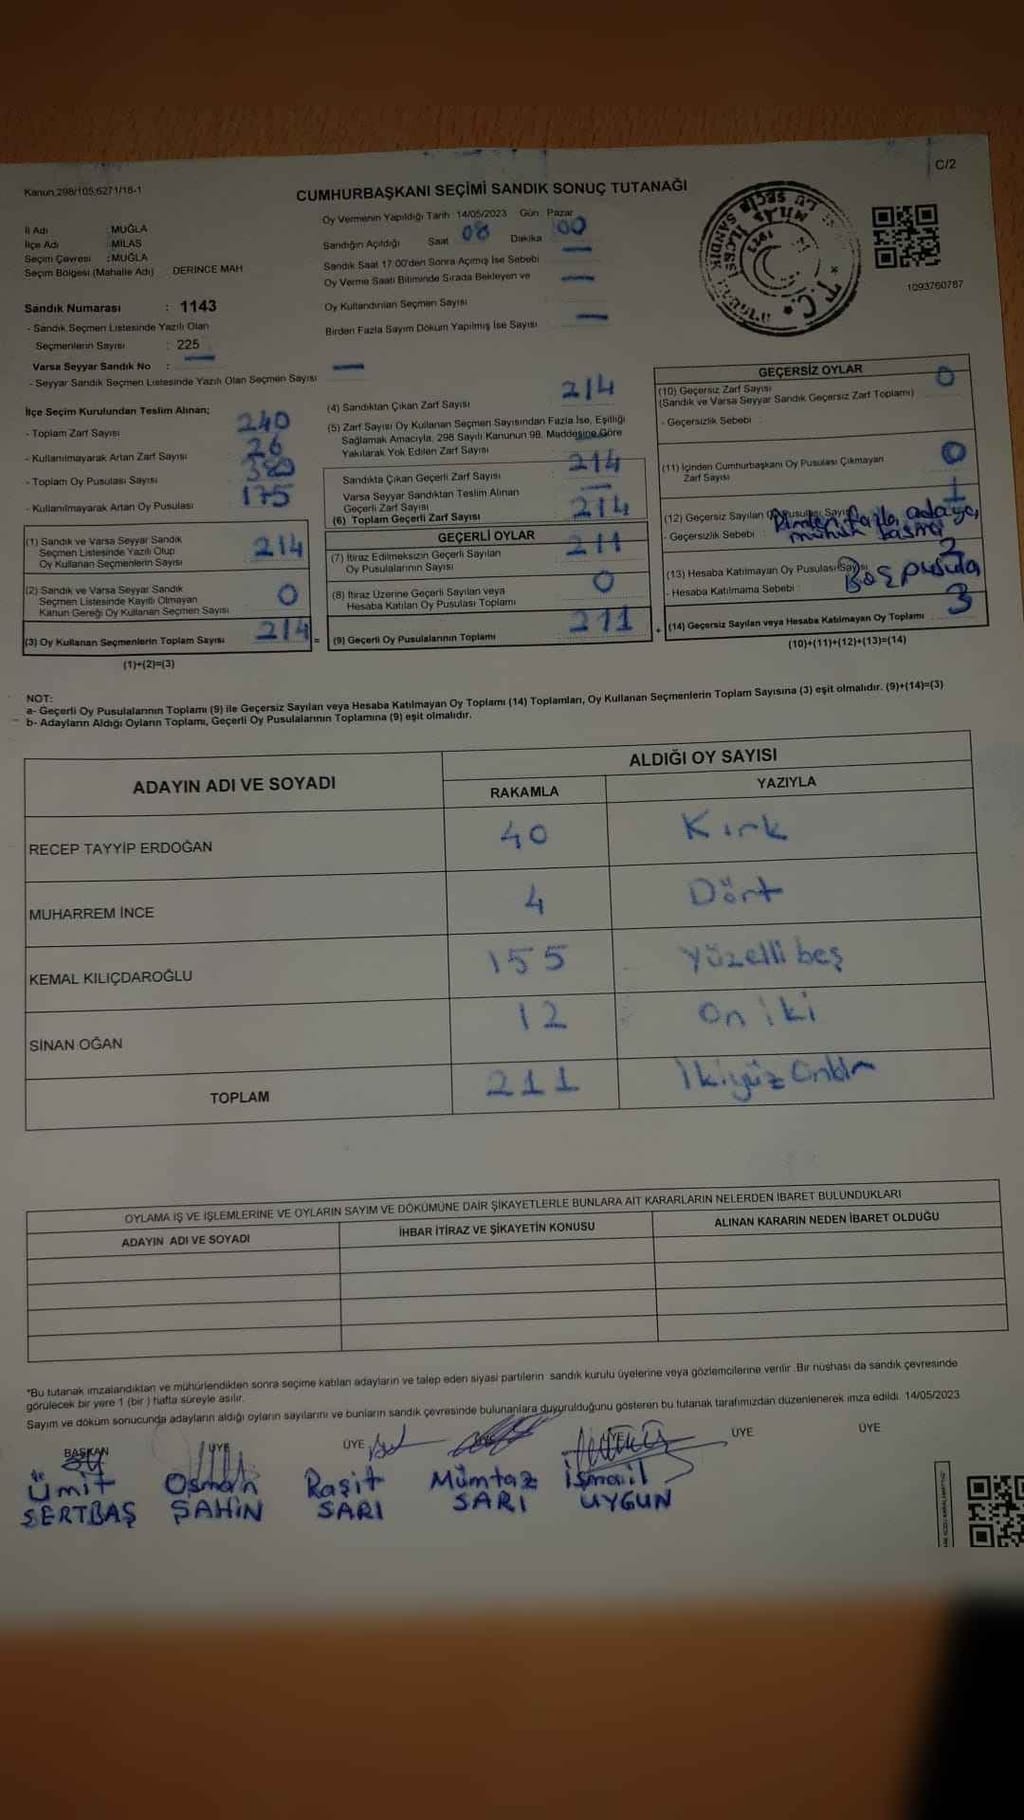 Kanun,298/105,6271/18-1
C/2
CUMHURBAŞKANI SEÇİMİ SANDIK SONUÇ TUTANAĞI
İl Adı : MUĞLA
İlçe Adı : MİLAS
Seçim Çevresi : MUĞLA
Seçim Bölgesi (Mahalle Adı) DERİNCE MAH
Sandık Numarası : 1143
- Sandık Seçmen Listesinde Yazılı Olan
Seçmenlerin Sayısı : 225
Varsa Seyyar Sandık No : —
- Seyyar Sandık Seçmen Listesinde Yazılı Olan Seçmen Sayısı —
Oy Vermenin Yapıldığı Tarih 14/05/2023 Gün Pazar
Sandığın Açıldığı Saat 08 Dakika 00
Sandık Saat 17:00'den Sonra Açmış İse Sebebi —
Oy Verme Saati Bitiminde Sırada Bekleyen ve —
Oy Kullandırılan Seçmen Sayısı
Birden Fazla Sayım Döküm Yapılmış İse Sayısı —
1093760787
İlçe Seçim Kurulundan Teslim Alınan;
- Toplam Zarf Sayısı 240
- Kullanılmayarak Artan Zarf Sayısı 26
- Toplam Oy Pusulası Sayısı
- Kullanılmayarak Artan Oy Pusulası 175
(1) Sandık ve Varsa Seyyar Sandık
Seçmen Listesinde Yazılı Olup
Oy Kullanan Seçmenlerin Sayısı 214
(2) Sandık ve Varsa Seyyar Sandık
Seçmen Listesinde Kayıtlı Olmayan
Kanun Gereği Oy Kullanan Seçmen Sayısı 0
(3) Oy Kullanan Seçmenlerin Toplam Sayısı 214 =
(1)+(2)=(3)
(4) Sandıktan Çıkan Zarf Sayısı 214
(5) Zarf Sayısı Oy Kullanan Seçmen Sayısından Fazla İse, Eşitliği
Sağlamak Amacıyla, 298 Sayılı Kanunun 98. Maddesine Göre
Yakılarak Yok Edilen Zarf Sayısı —
Sandıkta Çıkan Geçerli Zarf Sayısı 214
Varsa Seyyar Sandıktan Teslim Alınan
Geçerli Zarf Sayısı —
(6) Toplam Geçerli Zarf Sayısı 214
GEÇERLİ OYLAR
(7) İtiraz Edilmeksizin Geçerli Sayılan
Oy Pusulalarının Sayısı 211
(8) İtiraz Üzerine Geçerli Sayılan veya
Hesaba Katılan Oy Pusulası Toplamı 0
(9) Geçerli Oy Pusulalarının Toplamı 211 +
GEÇERSİZ OYLAR
(10) Geçersiz Zarf Sayısı 0
(Sandık ve Varsa Seyyar Sandık Geçersiz Zarf Toplamı)
- Geçersizlik Sebebi
(11) İçinden Cumhurbaşkanı Oy Pusulası Çıkmayan
Zarf Sayısı 0
(12) Geçersiz Sayılan Oy Pusulası Sayısı 1
- Geçersizlik Sebebi : Birden fazla adaya,
mühür basma
(13) Hesaba Katılmayan Oy Pusulası Sayısı 2
- Hesaba Katılmama Sebebi : Boş pusula
(14) Geçersiz Sayılan veya Hesaba Katılmayan Oy Toplamı 3
(10)+(11)+(12)+(13)=(14)
NOT:
a- Geçerli Oy Pusulalarının Toplamı (9) ile Geçersiz Sayılan veya Hesaba Katılmayan Oy Toplamı (14) Toplamları, Oy Kullanan Seçmenlerin Toplam Sayısına (3) eşit olmalıdır. (9)+(14)=(3)
b- Adayların Aldığı Oyların Toplamı, Geçerli Oy Pusulalarının Toplamına (9) eşit olmalıdır.
ADAYIN ADI VE SOYADI
ALDIĞI OY SAYISI
RAKAMLA YAZIYLA
RECEP TAYYİP ERDOĞAN 40 Kırk
MUHARREM İNCE 4 Dört
KEMAL KILIÇDAROĞLU 155 yüzelli beş
SİNAN OĞAN 12 on iki
TOPLAM 211 İkiyüz Onbir
OYLAMA İŞ VE İŞLEMLERİNE VE OYLARIN SAYIM VE DÖKÜMÜNE DAİR ŞİKAYETLERLE BUNLARA AİT KARARLARIN NELERDEN İBARET BULUNDUKLARI
ADAYIN ADI VE SOYADI İHBAR İTİRAZ VE ŞİKAYETİN KONUSU ALINAN KARARIN NEDEN İBARET OLDUĞU
*Bu tutanak imzalandıktan ve mühürlendikten sonra seçime katılan adayların ve talep eden siyasi partilerin sandık kurulu üyelerine veya gözlemcilerine verilir. Bir nüshası da sandık çevresinde
görülecek bir yere 1 (bir) hafta süreyle asılır.
Sayım ve döküm sonucunda adayların aldığı oyların sayılarını ve bunların sandık çevresinde bulunanlara duyurulduğunu gösteren bu tutanak tarafımızdan düzenlenerek imza edildi. 14/05/2023
BAŞKAN ÜYE ÜYE ÜYE ÜYE
Ümit Osman Raşit Mümtaz İsmail
SERTBAŞ ŞAHİN SARI SARI UYGUN